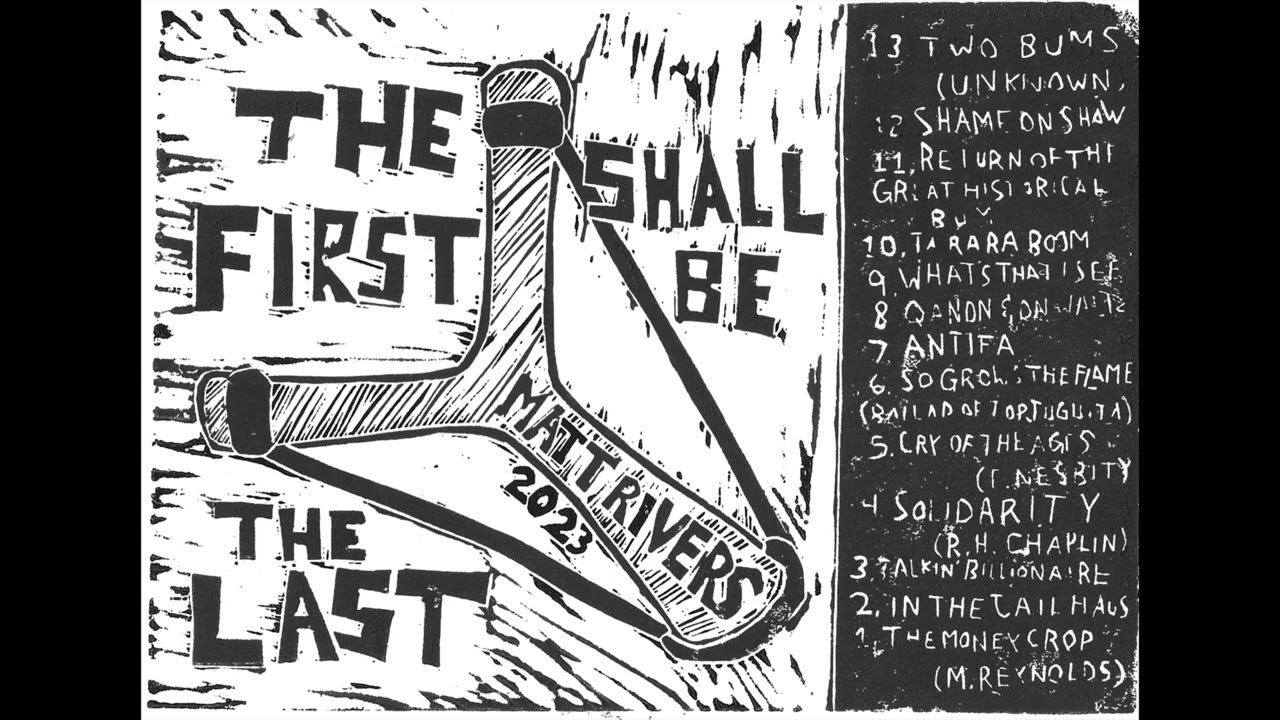 THE
FIRST
SHALL
BE
THE
LAST
MATT RIVERS
2023
13 TWO BUMS
(UNKNOWN,
12 SHAME ON SHAW
11, RETURN OF THE
GREAT HISTORICAL
10, TA RARA BOOM
9. WHATS THAT I SEE
8 QANON & ON
7 ANTIFA
6. SO GROWS THE FLAME
(BALLAD OF TORTUGUITA)
5. CRY OF THE AGES
NESBITY
4 SOLIDARITY
(R.H. CHAPLIN)
3. TALKIN' BILLIONAIRE
2, IN THE JAIL HAUS
1, THE MONEY CROP
(M. REYNOLDS)